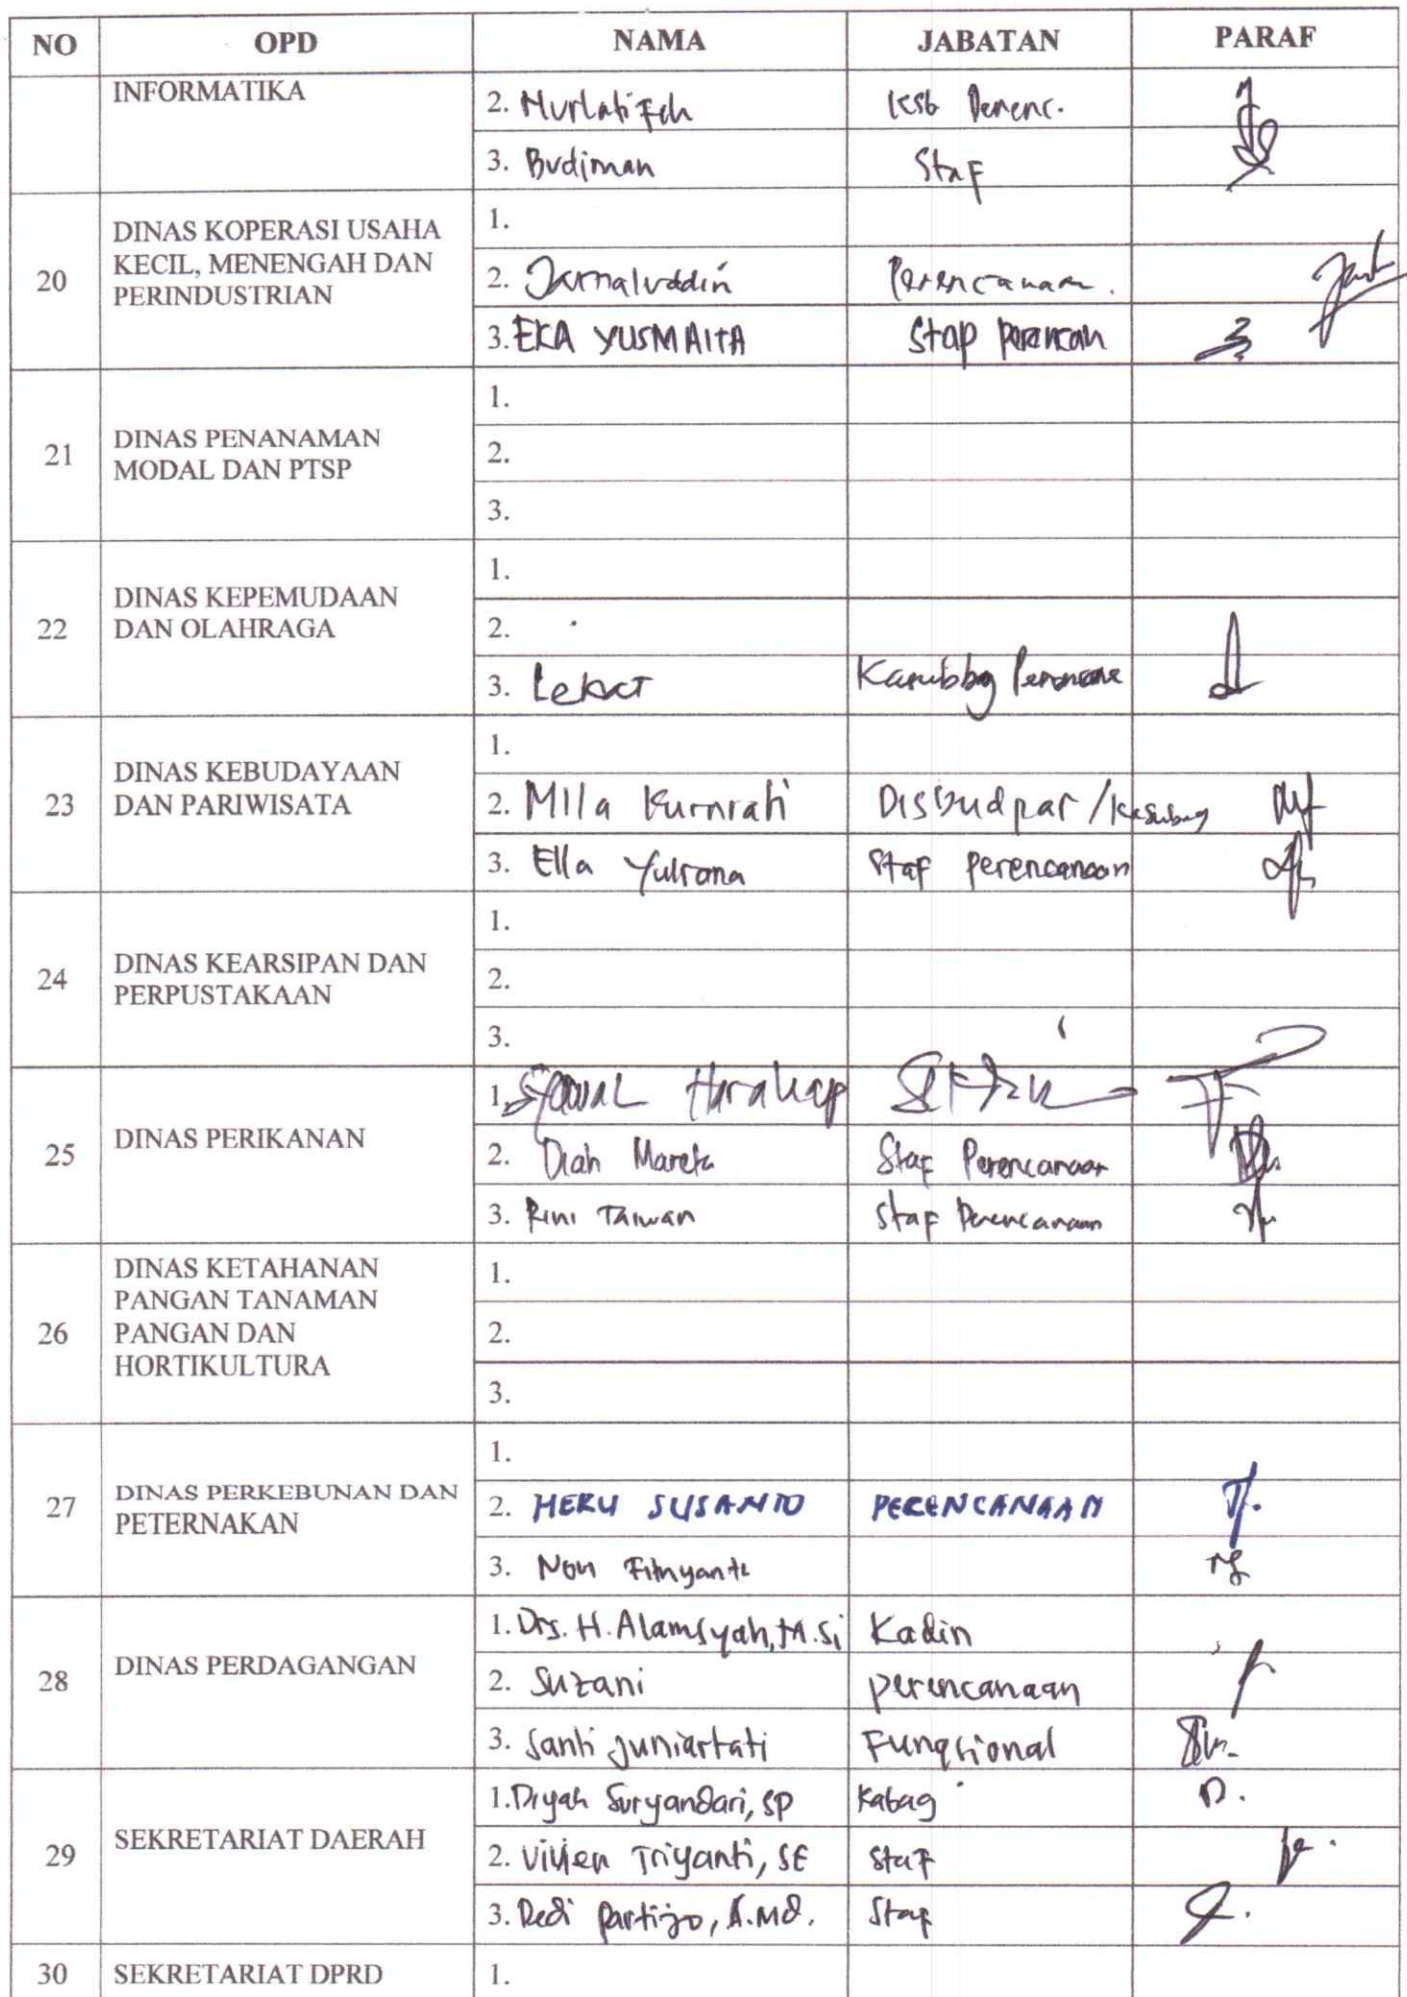 NO OPD NAMA JABATAN PARAF
INFORMATIKA
2. Nurlatifah Ksb Perenc.
3. Budiman Staf
20 DINAS KOPERASI USAHA KECIL, MENENGAH DAN PERINDUSTRIAN
1.
2. Jamaluddin Perencanaan.
3. EKA YUSMAITA Stap perencan
21 DINAS PENANAMAN MODAL DAN PTSP
1.
2.
3.
22 DINAS KEPEMUDAAN DAN OLAHRAGA
1.
2.
3. Lekat Kasubbag
23 DINAS KEBUDAYAAN DAN PARIWISATA
1.
2. Mila Kurniati Disbudpar/Kasubag
3. Ella Yulsana Staf perencanaan
24 DINAS KEARSIPAN DAN PERPUSTAKAAN
1.
2.
3.
25 DINAS PERIKANAN
1. Harahap
2. Diah Mareta Staf Perencanaan
3. Rini Staf Perencanaan
26 DINAS KETAHANAN PANGAN TANAMAN PANGAN DAN HORTIKULTURA
1.
2.
3.
27 DINAS PERKEBUNAN DAN PETERNAKAN
1.
2. HERU SUSANTO PERENCANAAN
3.
28 DINAS PERDAGANGAN
1. Drs. H. Alamsyah, M.Si Kadin
2. Suzani perencanaan
3. Santi Juniartati Fungsional
29 SEKRETARIAT DAERAH
1. Diyah Suryandari, SP Kabag
2. Vivien Triyanti, SE Staf
3. Dedi Partijo, A.Md. Staf
30 SEKRETARIAT DPRD
1.